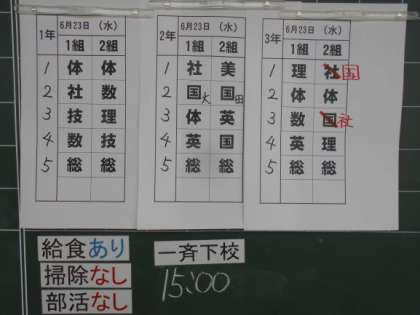 1年 6月23日 (水)
1組 2組
1 体 体
2 社 数
3 技 理
4 数 技
5 総 総
2年 6月23日 (水)
1組 2組
1 社 美
2 国大 国田
3 体 英
4 英 国
5 総 総
3年 6月23日 (水)
1組 2組
1 理 社 国
2 体 体
3 数 国 社
4 英 理
5 総 総
給食あり
掃除なし
部活なし
一斉下校
15:00